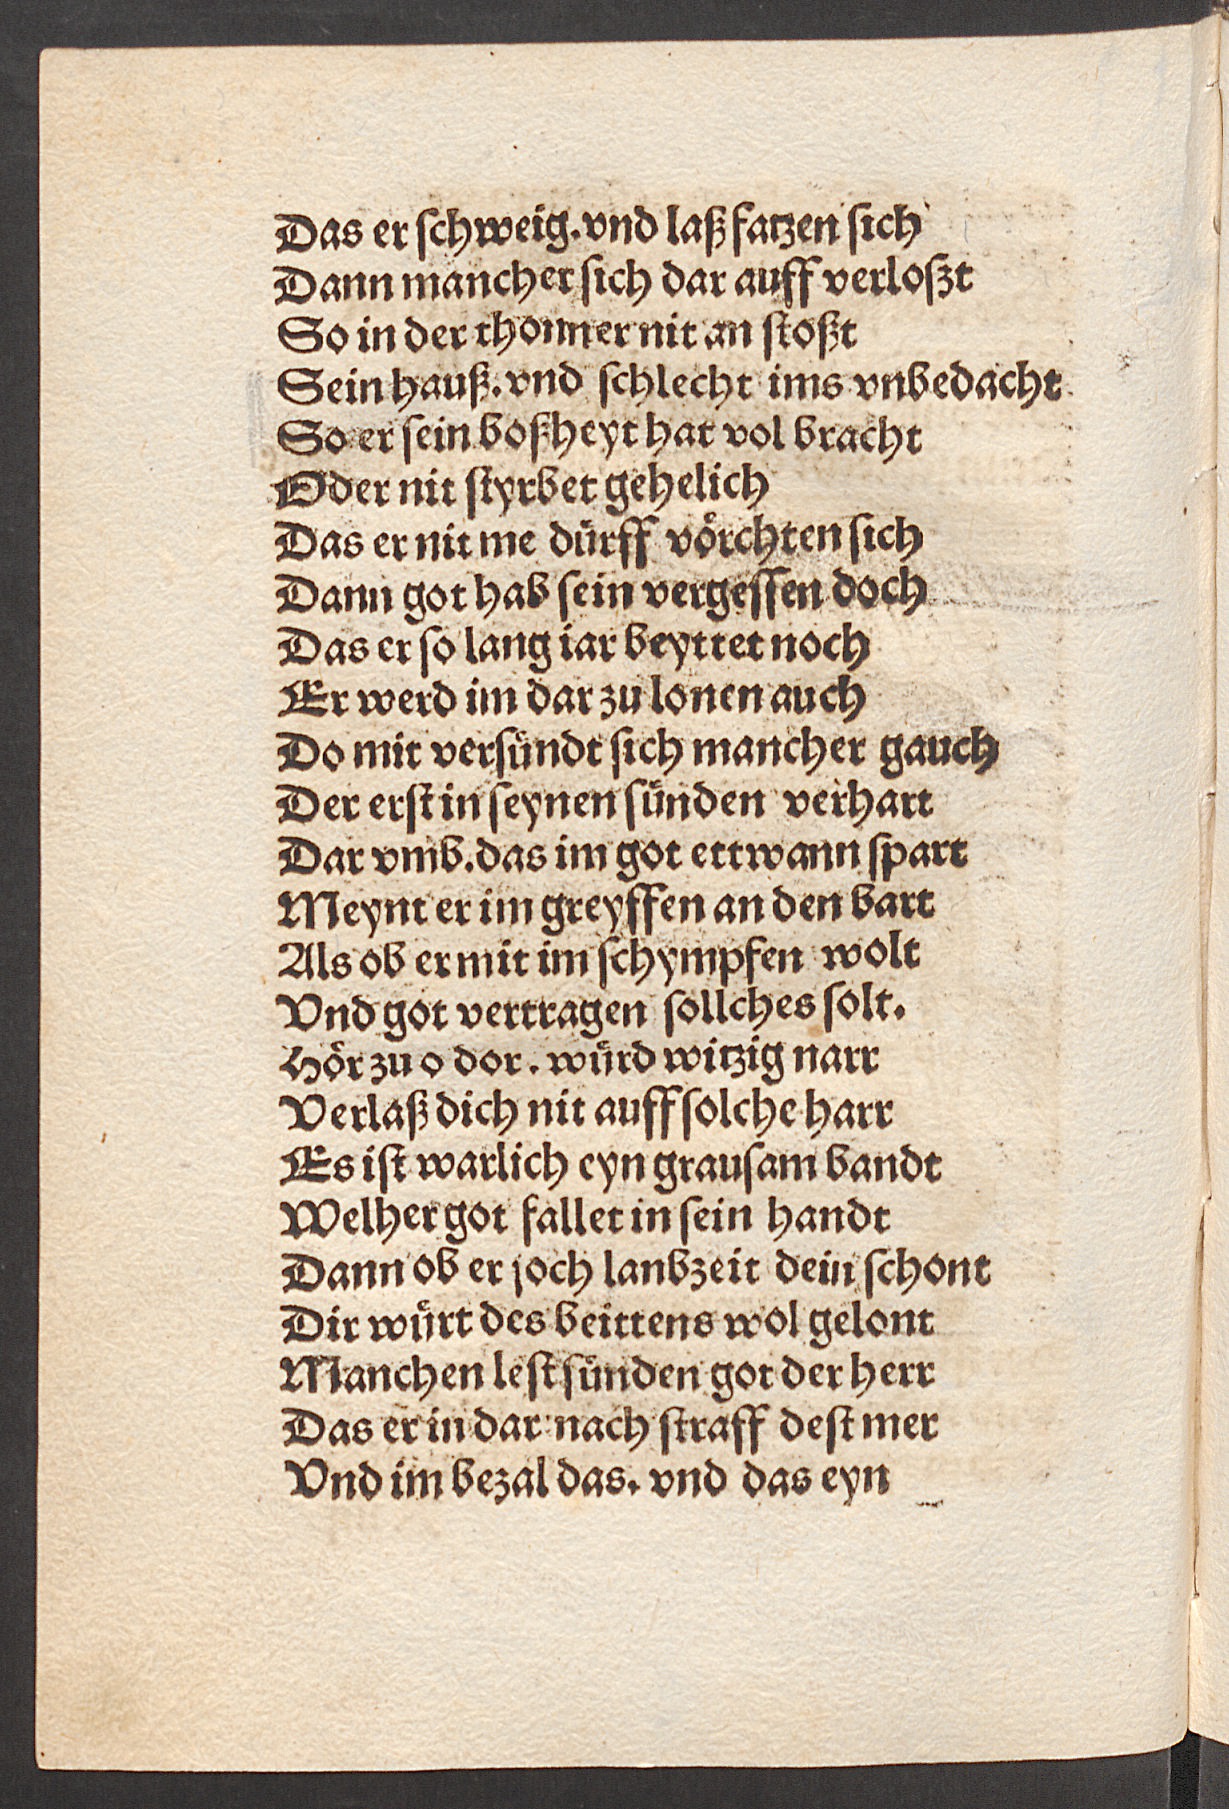 Das er schweig. vnd laß fatzen sich
Dann mancher sich dar auff verloszt
So in der thonner nit an stoßt
Sein hauß. vnd schlecht ims vnbedacht
So er sein boßheyt hat vol bracht
Oder nit styrbet gehelich
Das er nit me dürff vörchten sich
Dann got hab sein vergessen doch
Das er so lang iar beyttet noch
Er werd im dar zu lonen auch
Do mit versündt sich mancher gauch
Der erst in seynen sünden verhart
Dar vmb. das im got ettwann spart
Meynt er im greyffen an den bart
Als ob er mit im schympfen wolt
Vnd got vertragen sollches solt.
Hör zu o dor. würd witzig narr
Verlaß dich nit auff solche harr
Es ist warlich eyn grausam bandt
Welher got fallet in sein handt
Dann ob er joch lanbzeit dein schont
Dir würt des beittens wol gelont
Manchen lest sünden got der herr
Das er in dar nach straff dest mer
Vnd im bezal das. vnd das eyn